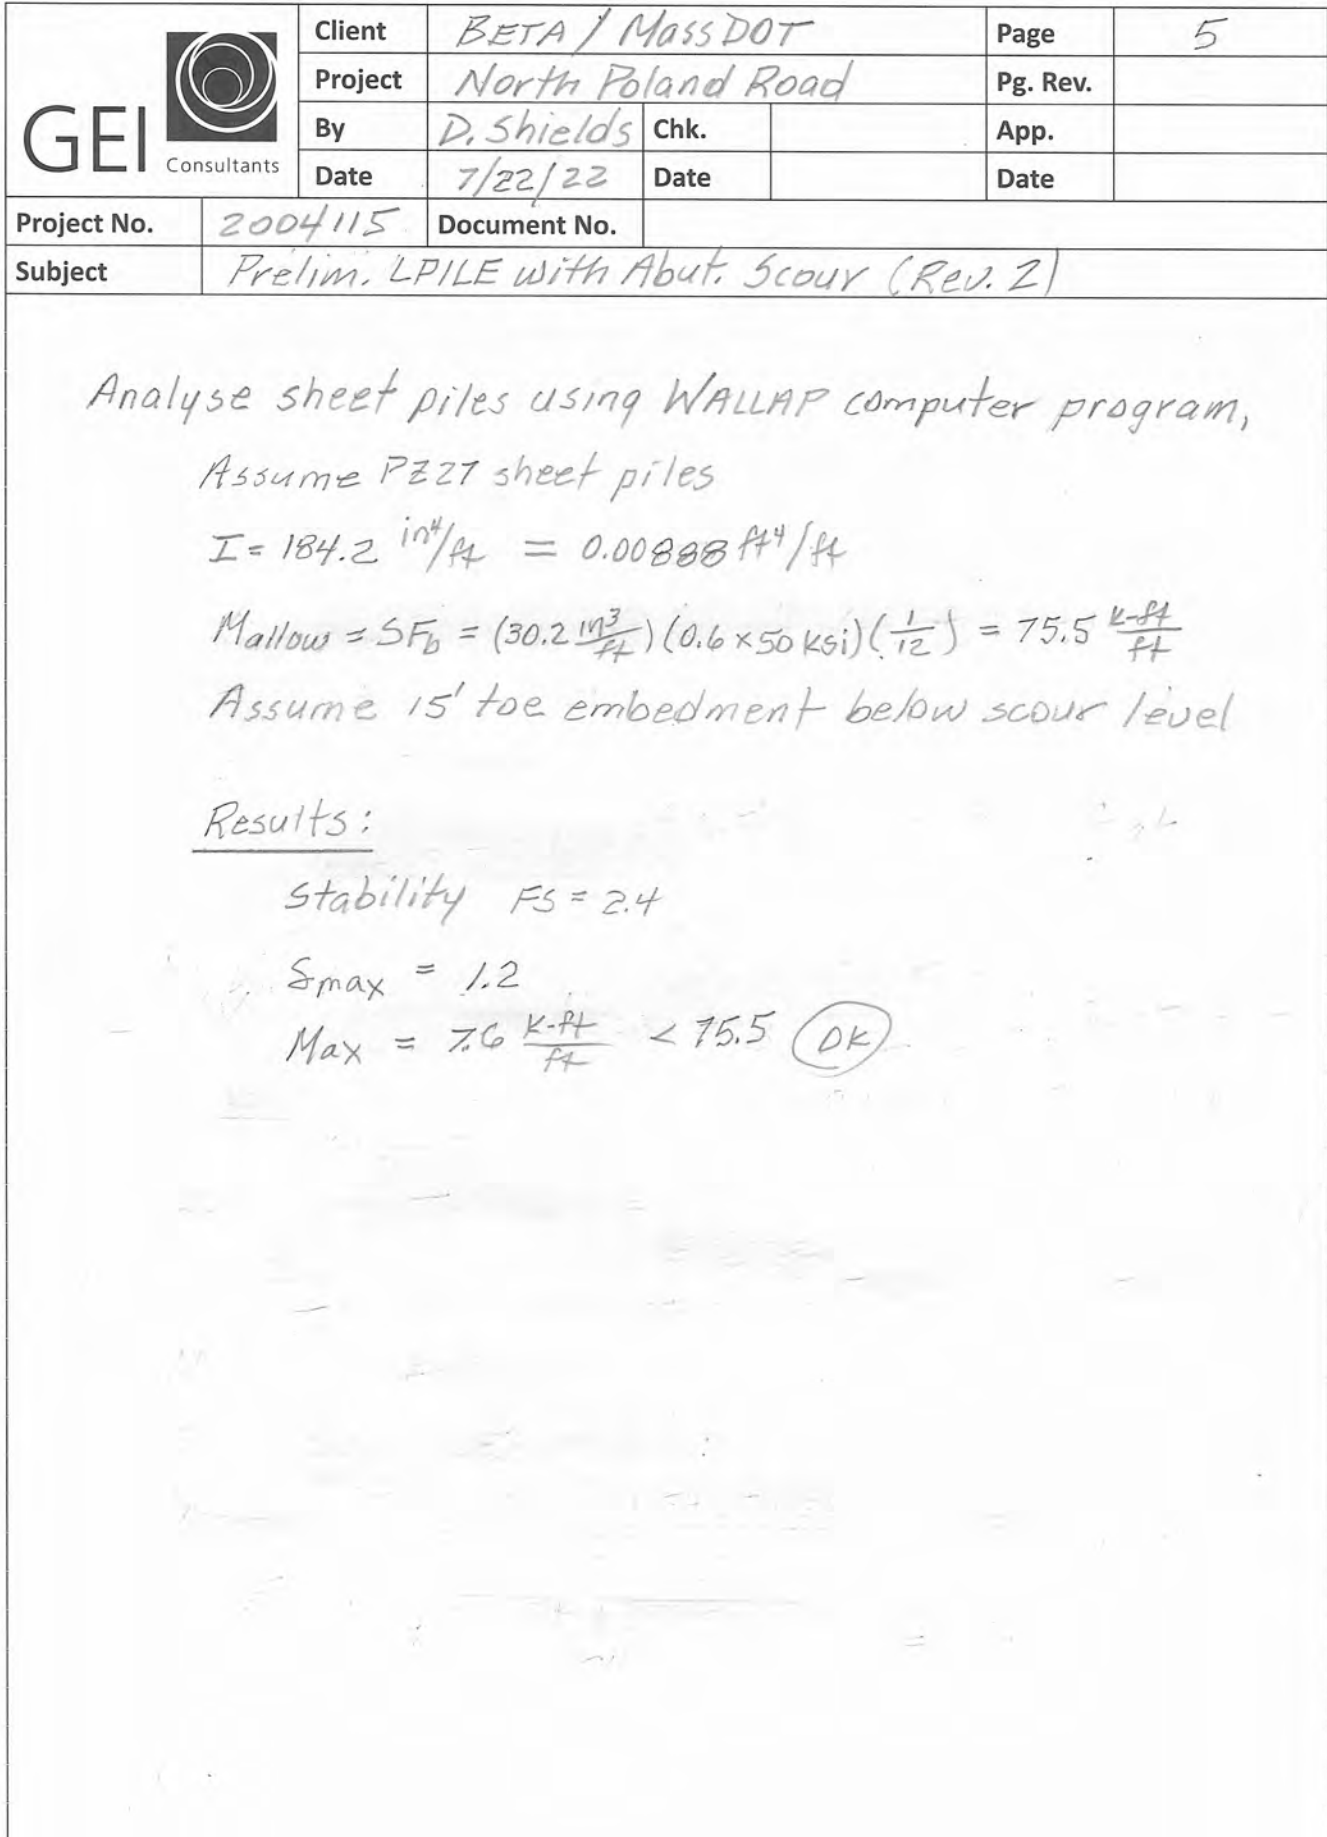 GEI Consultants
Client BETA / MassDOT Page 5
Project North Poland Road Pg. Rev.
By D. Shields Chk. App.
Date 7/22/22 Date Date
Project No. 2004115 Document No.
Subject Prelim. LPILE with Abut. Scour (Rev. 2)
Analyse sheet piles using WALLAP computer program,
Assume PZ27 sheet piles
I = 184.2 in⁴/ft = 0.00888 ft⁴/ft
Mallow = SFb = (30.2 in³/ft)(0.6 × 50 ksi)(1/12) = 75.5 k-ft/ft
Assume 15' toe embedment below scour level
Results:
Stability FS = 2.4
δmax = 1.2
Max = 7.6 k-ft/ft < 75.5 OK